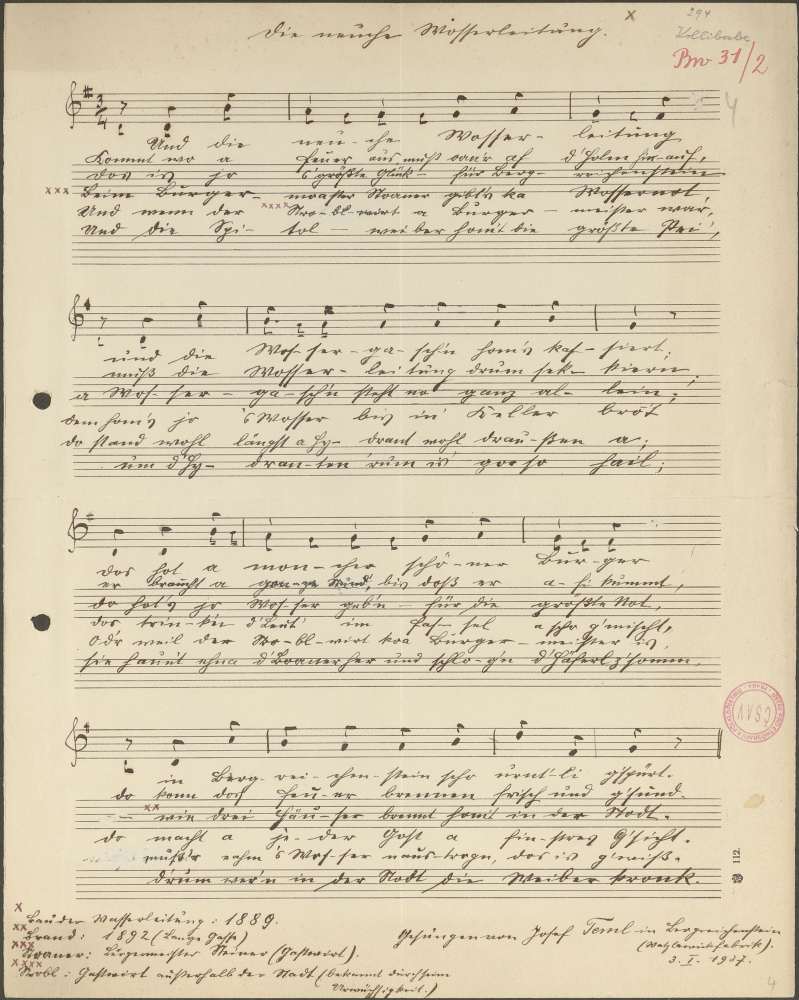 Die neuche Wosserleitung. x
294
Bw 31/2
4
Und die neu-che Wosser-leitung
Kommt wo a Feuer aus, muß oaner af d'Holm hin-auf,
Dos is jo s'größte Glük für Berg-reichenstein
xxx Beim Bürger-moaster Stoaner gibt's ka Wossernot
Und wenn der xxxx Stro-bl-wirt a Bürger-meister war,
Und die Spi-tol-weiber homt die größte Frei',
und die Wos-ser-ga-sch'n hom's kas-siert;
muß die Wosser-leitung drum sek-kiern;
a Wos-ser-ga-sch'n steht no ganz al-lein;
dem hom's jo 's Wosser bis in Keller brot
do stand wohl längst a Hy-drant wohl drau-ßen a;
um d'Hy-dran-ten rum is gor so fail;
dos hot a mon-cher schö-ner Bür-ger
er braucht a gon-ze Stund, bis doß er a-hi kummt,
do hot's jo Wos-ser geb'n für die größte Not,
dos trin-k'n d'Leut im Fas-sel a scho g'mischt,
Od'r weil der Stro-bl-wirt koa Bürger-meister is,
sie haun't ehna d'Boaner her und schlo-g'n d'Häferl z'somm,
in Berg-rei-chen-stein sehr urnt-li g'spürt.
do konn dos Feu-er brennen frisch und g'sund.
xx wie drei Häu-ser brennt homt in der Stodt.
do macht a je-der Gost a fin-stres G'sicht.
müß'r eahm 's Wos-ser naus-trogn, dos is g'wiß.
drum wer'n in der Stodt die Weiber kronk.
x Bau der Wasserleitung: 1889.
xx Brand: 1892 (Lange Gasse)
xxx Stoaner: Bürgermeister Steiner (Gastwirt).
xxxx Strobl: Gastwirt außerhalb der Stadt (bekannt durch seine
Urwüchsigkeit.)
Gesungen von Josef Teml in Bergreichenstein
3. I. 1937.
112.
4